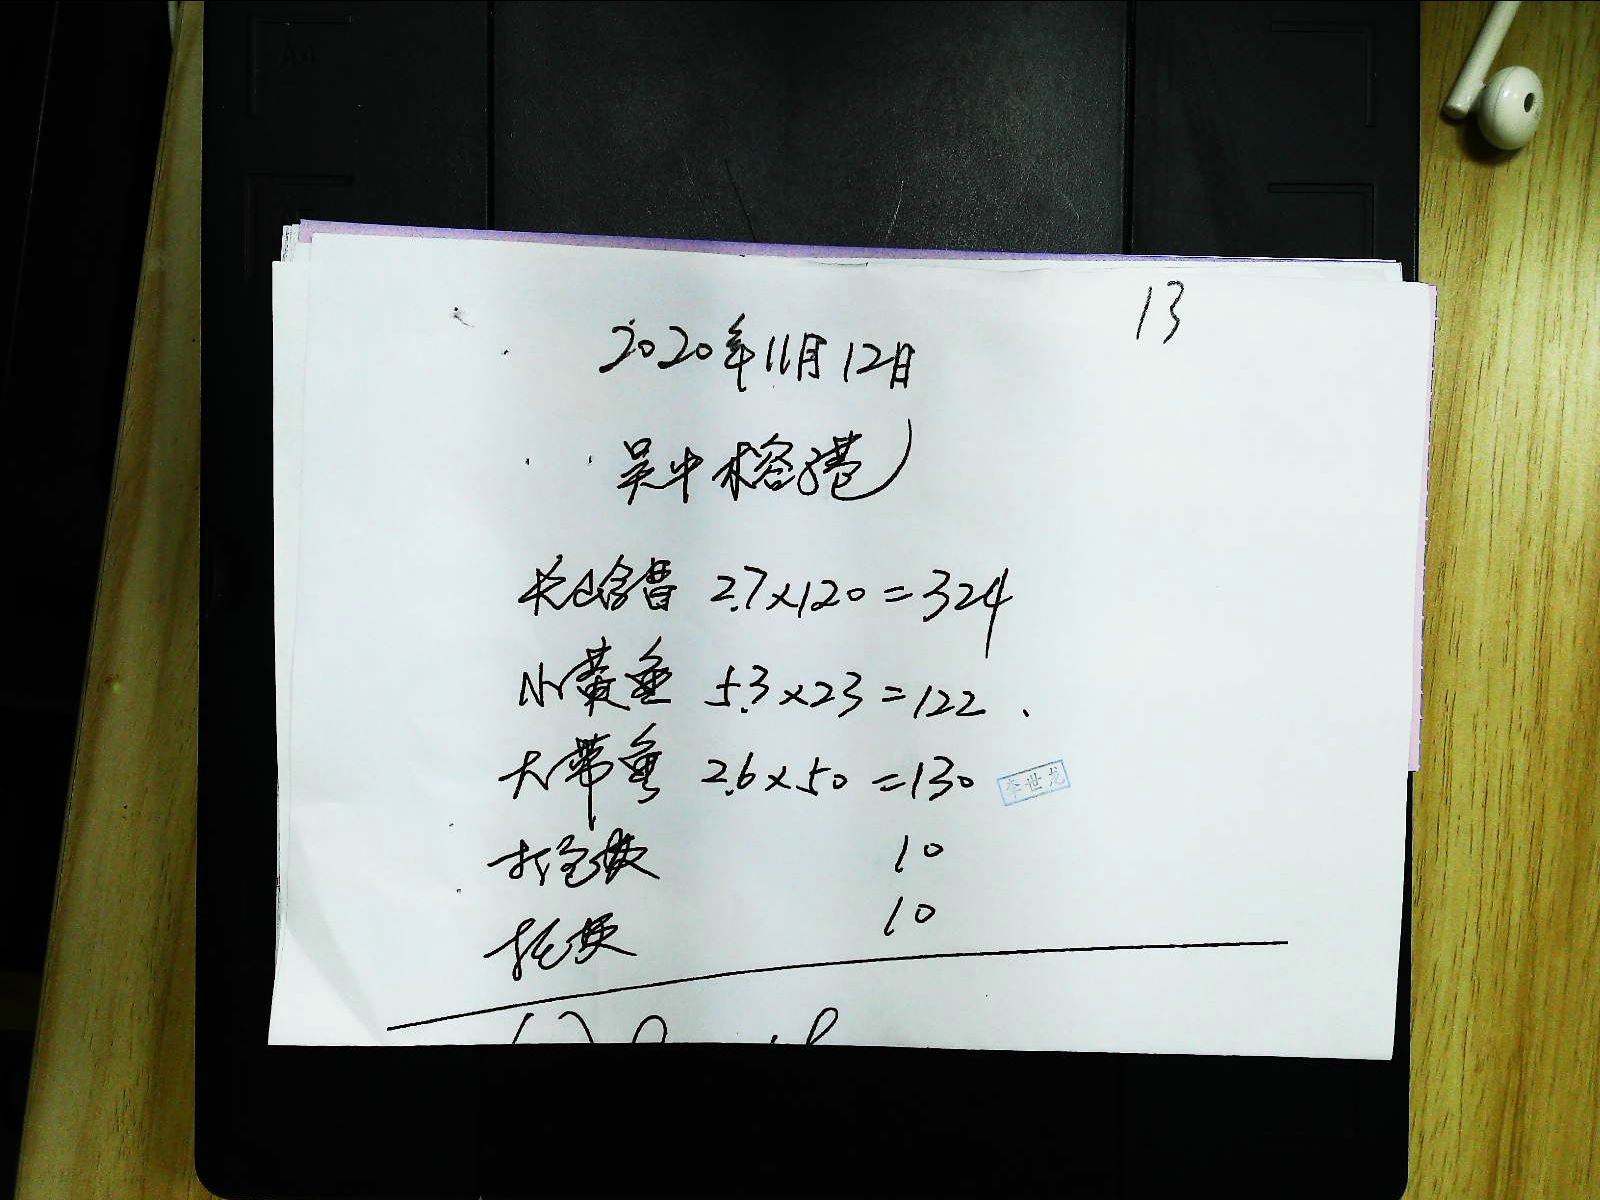 13
2020年11月12日
吴中榕港
2.7×120=324
小黄鱼 5.3×23=122
大带鱼 2.6×50=130
李世龙
打包费 10
10